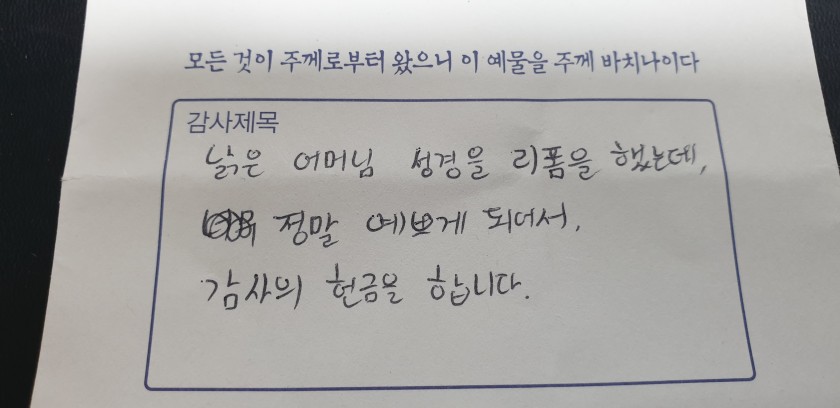 모든 것이 주께로부터 왔으니 이 예물을 주께 바치나이다
감사제목
낡은 어머님 성경을 리폼을 했는데,
정말 예쁘게 되어서,
감사의 헌금을 합니다.